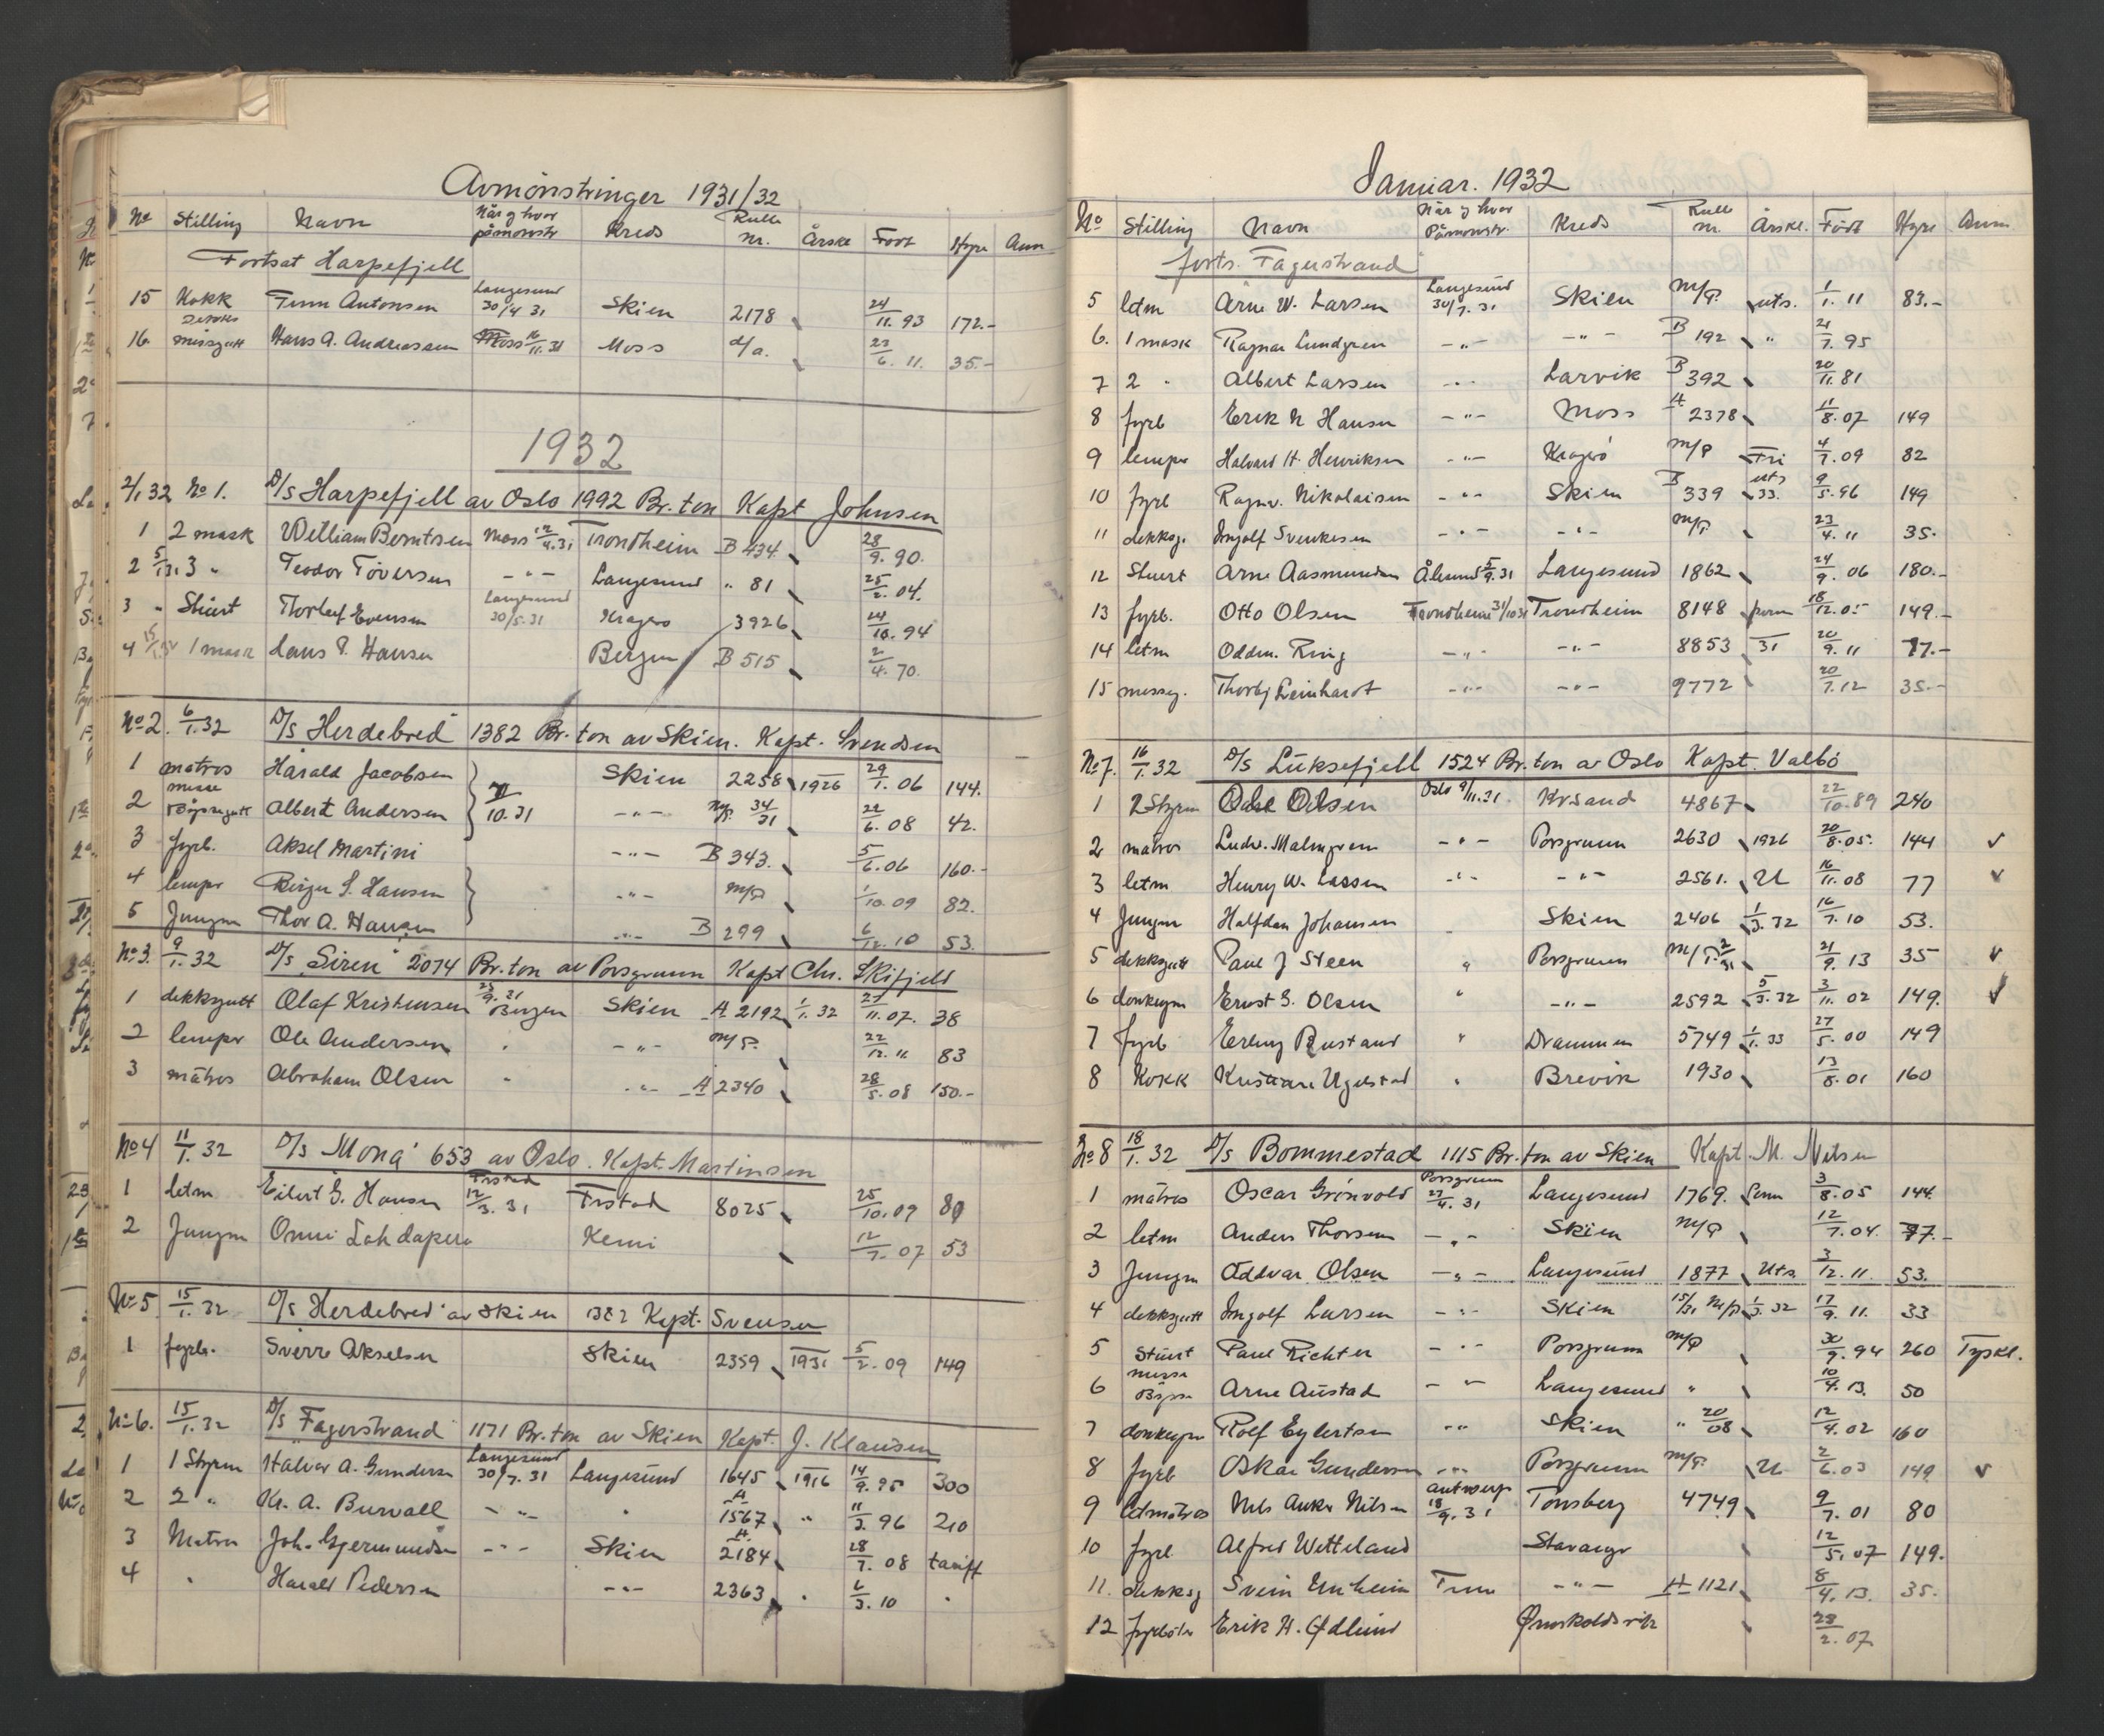 Avmönstringer 1931/32
No Stilling Navn Når og hvor påmönstr Kreds Rulle nr. Årskl Födt Hyre Anm
Fortsat Harpefjell
15 Kokk Finn Antonsen Langesund 30/4 31 Skien 2178 24/11. 93 172.-
16. missgutt Hans A. Andreassen Moss 16/11.31 Moss d/a. 23/6. 11. 35.-
1932
2/1 32 No 1. D/s Harpefjell av Oslo 1992 Br. ton Kapt Johnsen
1 2 mask William Berntsen Moss 12/4.31 Trondheim B 434 28/9. 90.
2 3 " Teodor Töversen -"- Langesund " 81 25/2. 04.
3 " Stuert Thorleif Evensen Langesund 30/5.31 Kragerö 3926 24/10. 94
4 1 mask Hans P. Hansen Bergen B 515 2/4. 70.
No 2. 6/1.32 D/s Herdebred 1382 Br. ton av Skien. Kapt. Svendsen
1 matros Harald Jacobsen Skien 2258 1926 29/1. 06 144.
2 messe Byssegutt Albert Andersen 10.31 -"- m/P. 34/31 22/6. 08 42.
3 fyrb. Aksel Martini -"- B 343. 5/6. 06 160.-
4 lemper Birger S. Hansen -"- m/P 1/10. 09 82.
5 Jungm Thor A. Hansen -"- B 299 6/12. 10 53.
No 3. 9/1. 32 D/s "Siren" 2074 Br. ton av Porsgrunn Kapt Chr. Skifjell
1 dekksgutt Olaf Kristensen 23/9. 31 Bergen Skien A 2192 1/1. 32 27/11. 07. 38
2 lemper Ole Andersen " -"- m/P. 22/12. 11 83
3 matros Abraham Olsen " -"- A 2340 28/5. 08 150.-
No 4 11/1. 32 D/s "Mona" 653 av Oslo. Kapt. Martinsen
1 letm Eilert G. Hansen Frstad 12/3. 31 Frstad 8025 25/10. 09 80
2 Jungm Onni Lahdapera Kemi 12/7. 07 53
No 5. 15/1. 32 D/s Herdebred av Skien 1382 Kapt. Svensen
1 fyrb. Sverre Akselsen Skien 2359 1931 5/2. 09 149
No 6. 15/1. 32 D/s Fagerstrand 1171 Br. ton av Skien Kapt. J. Klausen
1 1 Styrm Halvor A. Gundersen Langesund 30/7. 31 Langesund 1645 1916 14/9. 95 300
2 2 " Kr. A. Burvall -"- " A 1567 " 11/3. 96 210
3 Matros Joh. Gjermundsen -"- Skien A 2184 28/7. 08 tariff
4 " Harald Pedersen -"- 2363 " 6/3. 10 "
Januar. 1932
No Stilling Navn Når og hvor Påmönstr. Kreds Rulle nr. Årskl. Födt Hyre Anm
forts. Fagerstrand
5 letm Arne W. Larsen Langesund 30/7. 31 Skien m/P. uts. 1/1. 11 83.-
6. 1 mask Ragnar Lundgren -"- -"- B 192 " 21/7. 95
7 2 " Albert Larsen -"- Larvik B 392 20/11. 81
8 fyrb Erik N Hansen -"- Moss A 2378 11/8. 07 149
9 lemper Halvard H. Henriksen -"- Kragerö m/P Fri 4/7. 09 82
10 fyrb Ragnv. Nikolaisen -"- Skien B 339 uts 33. 9/5. 96 149
11 dekksg. Ingolf Svenkesen -"- -"- m/P. 23/4. 11 35.
12 Stuert Arne Aasmundsen Ålesund 5/9. 31 Langesund 1862 24/9. 06 180.-
13 fyrb. Otto Olsen Trondheim 31/10 31 Trondheim 8148 perm 18/12. 05 149.-
14 letm Oddm. Ring -"- -"- 8853 31 20/9. 11 77.-
15 messeg. Thorbj Leinhardt -"- -"- 9772 20/7. 12 35.-
No 7. 16/1. 32 D/s Luksefjell 1524 Br. ton av Oslo Kapt. Valbö
1 2 Styrm Olsen Oslo 9/11. 31 Krsand 4867 22/10. 89 240
2 matros Ludv. Malmgren -"- Porsgrunn 2630 1926 20/8. 05. 144 ✓
3 letm Henry W. Lassen -"- -"- 2561. U 16/11. 08 77 ✓
4 Jungm Halfdan Johansen Skien 2406 1/3. 32 16/7. 10 53.
5 dekksgutt Paul J Steen " Porsgrunn m/P. 2/31 21/9. 13 35 ✓
6 donkeym Ernst G. Olsen " -"- 2592 5/3. 32 3/11. 02 149. ✓
7 fyrb Erling Rustand " Drammen 5749 1/1. 33 27/5. 00 149
8 Kokk Kristian Ugelstad " Brevik 1930 13/8. 01 160
No 8 18/1. 32 D/s Bommestad 1115 Br. ton av Skien Kapt. M. Nilsen
1 matros Oscar Grönvold Porsgrunn 27/4. 31 Langesund 1769. Perm 3/8. 05 144.
2 letm Anders Thorsen -"- Skien m/P 12/7. 04. 77.-
3 Jungm Oddvar Olsen -"- Langesund 1877 Uts 3/12. 11. 53.
4 dekksgutt Ingolf Larsen -"- Skien 15/31 m/p 1/3. 32 17/9. 11. 33
5 Stuert Paul Richter -"- Porsgrunn m/P 30/9. 94 260 Tyskl.
6 messe Bysse Arne Austad -"- Langesund " 10/4. 13. 50
7 donkeym Rolf Eylertsen -"- Skien " 20/08 12/4. 02 160
8 fyrb Oskar Gundersen -"- Porsgrunn m/P. U 2/6. 03 149 ✓
9 letmatros Nils Anker Nilsen Antwerp 18/9. 31 Tönsberg 4749 9/7. 01 80
10 fyrb Alfred Wetteland Stavanger 12/5. 07 149.
11. dekksg Svein -"- A 1121 8/4. 13. 35.
12 fyrböter Erik H. Ødlund Ørnskoldsvik 23/2. 07